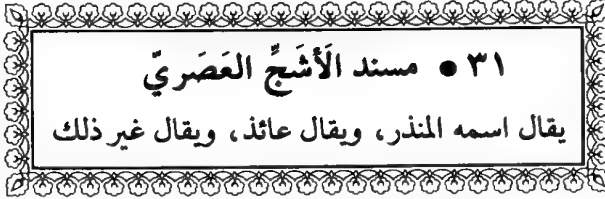 ٣١ ● مسند الَأشَجِّ العَصَريّ
يقال اسمه المنذر، ويقال عائذ، ويقال غير ذلك